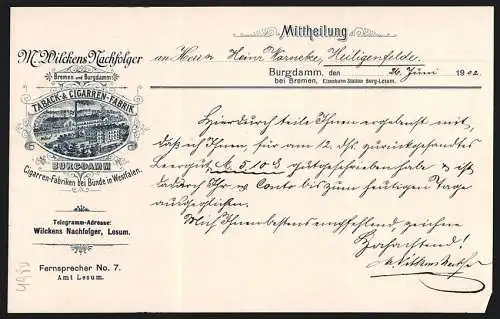 Mittheilung
M. Wilckens Nachfolger
Bremen und Burgdamm
TABACK- & CIGARREN-FABRIK
BURGDAMM
Cigarren-Fabriken bei Bünde in Westfalen.
Telegramm-Adresse:
Wilckens Nachfolger, Lesum.
Fernsprecher No. 7.
Amt Lesum.
an Herrn Heinr Warneke, Heiligenfelde.
Burgdamm, den 26. Juni 1902.
bei Bremen, Eisenbahn Station Burg-Lesum.
Hierdurch teile Ihnen ergebenst mit,
daß ich Ihnen, für am 12. ds zurückgesandtes
Leergut M. 5.10 gutgeschrieben habe & ist
dadurch Ihr Conto bis zum heutigen Tage
ausgeglichen.
Mich Ihnen bestens empfehlend, zeichne
Hochachtend!
M. Wilkens Nachf